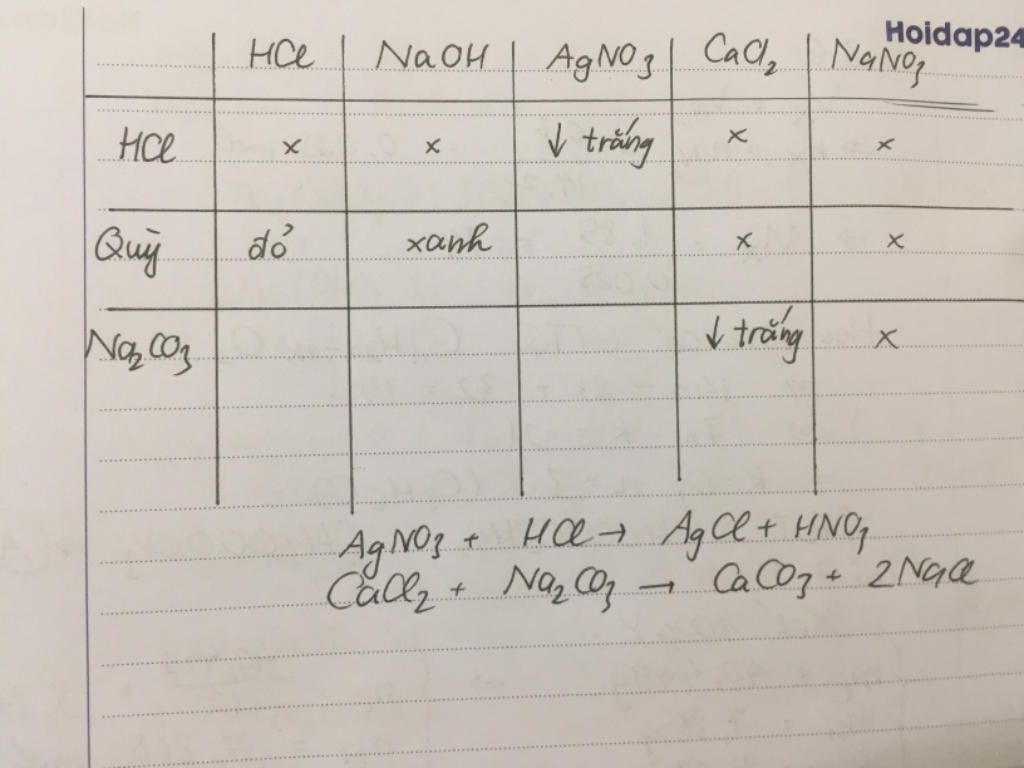 Hoidap24
HCl NaOH AgNO3 CaCl2 NaNO3
HCl x x ↓ trắng x x
Quỳ đỏ xanh x x
Na2CO3 ↓ trắng x
AgNO3 + HCl → AgCl + HNO3
CaCl2 + Na2CO3 → CaCO3 + 2NaCl